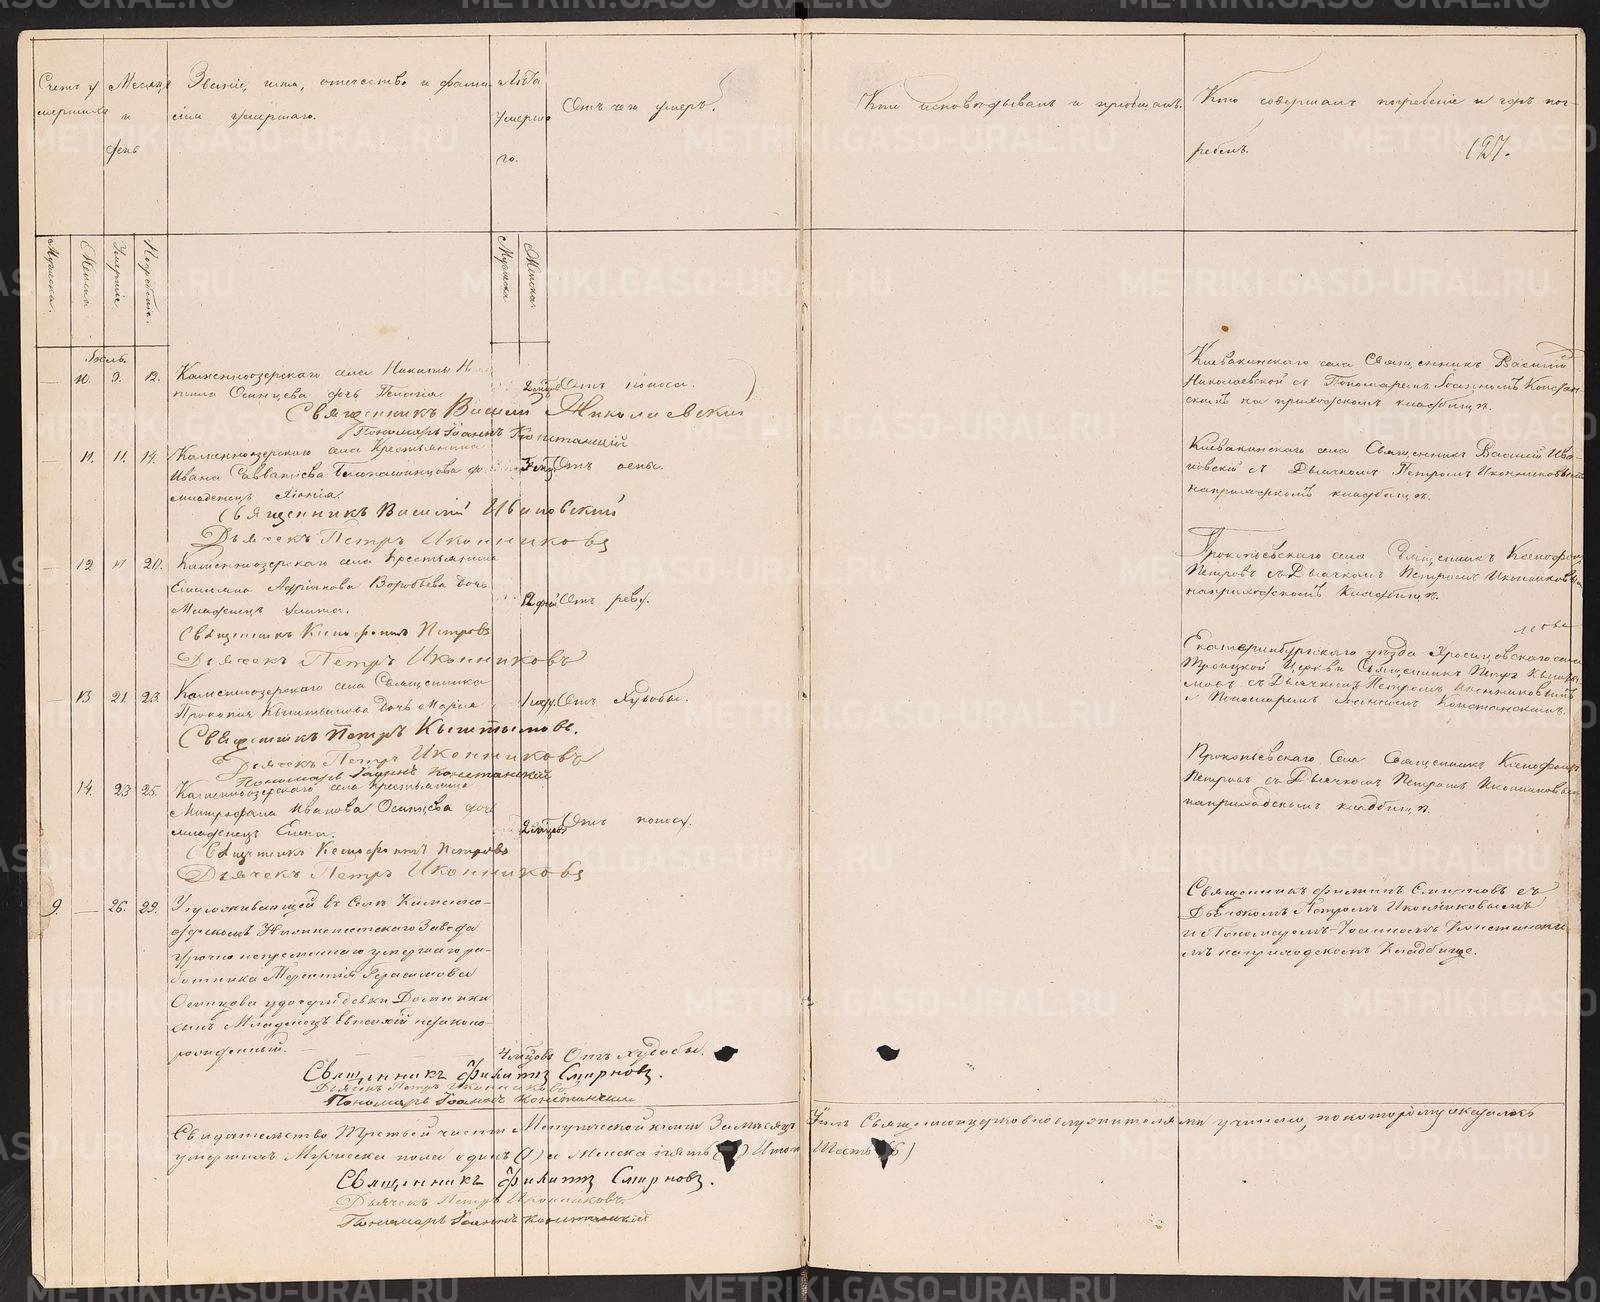 Счетъ у мершихъ
Мужеска.
Женска
Месяцъ и день
Умертіе
Погребеніе.
Званіе, имя, отчество и фами лія умершаго.
Лѣта умерша го.
Мужска
Женска.
Отъ чего умеръ.
Кто исповѣдывалъ и пріобщалъ.
Кто совершалъ погребеніе и гдѣ пог-
ребенъ.
127.
Іюль.
— 10. 9. 12.
Каменноозерскаго села Никиты
Осинцева дочь Пелагія
2 мѣс
Отъ поноса.
Священникъ Василій Николаевскій
Пономарь Іоаннъ Констанскій
Клевакинскаго села Священникъ Василій
Николаевской съ Пономаремъ Іоанномъ Констан-
скимъ на приходскомъ кладбищѣ.
— 11. 11. 14.
Каменноозерскаго села Крестьянина
Ивана Савватіева
младенецъ
Отъ оспы.
Священникъ Василій Ивановскій
Дьячекъ Петръ Иконниковъ
Клевакинскаго села Священникъ Василій Ива-
новскій съ Дьячкомъ Петромъ Иконниковымъ
на приходскомъ кладбищѣ.
— 12 17 20.
Каменноозерскаго села Крестьянина
Воробьева дочь
Младенецъ
12 дней
Отъ реву.
Священникъ Ксенофонтъ Петровъ
Дьячекъ Петръ Иконниковъ
Прокопьевскаго села Священникъ Ксенофонтъ
Петровъ съ Дьячкомъ Петромъ Иконниковымъ
на приходскомъ кладбищѣ.
— 13 21. 23.
Каменноозерскаго села Священника
Прокопія Кыштымова дочь Марія
1 году.
Отъ Худобы.
Священникъ Петръ Кыштымовъ.
Дьячекъ Петръ Иконниковъ
Пономарь Іоаннъ Констанскій
Екатеринбургскаго уѣзда села
Троицкой Церкви Священникъ Петръ Кышты-
мовъ съ Дьячкомъ Петромъ Иконниковымъ
и Пономаремъ Іоанномъ Констанскимъ.
14. 23 25.
Каменноозерскаго села Крестьянина
Митрофана Иванова Осинцева дочь
младенецъ Елена.
2 мѣсяцовъ
Отъ поносу.
Священникъ Ксенофонтъ Петровъ
Дьячекъ Петръ Иконниковъ
Прокопьевскаго Села Священникъ Ксенофонтъ
Петровъ съ Дьячкомъ Петромъ Иконниковымъ
на приходскомъ кладбищѣ.
9. — 26. 29.
У проживающей въ Селѣ Каменно-
озерскомъ Завода
урочно непременнаго умершаго ра-
ботника Терентія Герасимова
у дочери девки Домники
сынъ Младенецъ Евгеній незаконо-
рожденный.
4 мѣсяцовъ
Отъ Худобы.
Священникъ Филиппъ Смирновъ.
Дьячекъ Петръ Иконниковъ
Пономарь Іоаннъ Констанскій
Священникъ Филиппъ Смирновъ съ
Дьячкомъ Петромъ Иконниковымъ
и Пономаремъ Іоанномъ Констански
мъ на приходскомъ Кладбище.
Свидетельство Третьей части Метрической книги За мѣсяцъ Іюль Священноцерковнослужителями учинено, по которому оказалось
умершихъ Мужеска пола одинъ (1) а Женска пять (5) Итого Шесть (6)
Священникъ Филиппъ Смирновъ.
Дьячекъ Петръ Иконниковъ.
Пономарь Іоаннъ Констанскій
METRIKI.GASO-URAL.RU